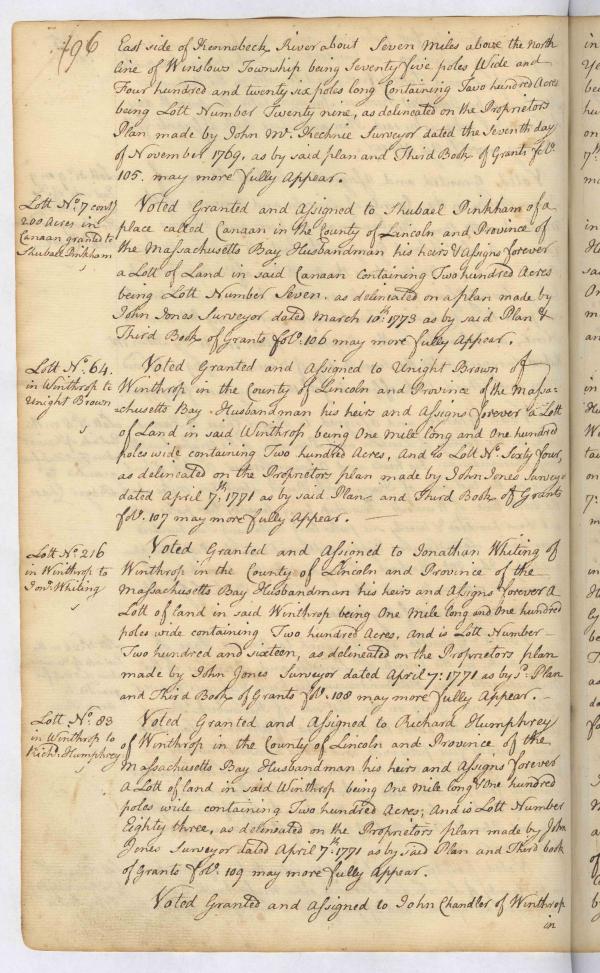 196
East side of Kennebeck River about Seven Miles above the North
line of Winslows Township being Seventy five poles Wide and
Four hundred and twenty six poles long Containing Two hundred Acres
being Lott Number Twenty nine, as delineated on the Proprietors
Plan made by John Mc. Kechnie Surveyor dated the Seventh day
of November 1769. as by said plan and Third Book of Grants fol:
105. may more fully Appear.
Lott No. 7 contg
200 Acres in
Canaan granted to
Shubael Pinkham
Voted Granted and Assigned to Shubael Pinkham of a
place called Canaan in the County of Lincoln and Province of
the Massachusetts Bay Husbandman his heirs & Assigns forever
a Lott of Land in said Canaan containing Two hundred Acres
being Lott Number Seven. as delineated on a plan made by
John Jones Surveyor dated March 10th. 1773 as by said Plan &
Third Book of Grants fol: 106 may more fully Appear.
Lott No. 64.
in Winthrop to
Unight Brown
Voted Granted and Assigned to Unight Brown of
Winthrop in the County of Lincoln and Province of the Massa-
-chusetts Bay - Husbandman his heirs and Assigns forever a Lott
of Land in said Winthrop being One Mile long and One hundred
poles wide containing Two hundred Acres, And is Lott No. Sixty four,
as delineated on the Proprietors plan made by John Jones Surveyor
dated April 7th. 1771 as by said Plan and Third Book of Grants
fol: 107 may more fully Appear. —
Lott No. 216
in Winthrop to
Jona. Whiting
Voted Granted and Assigned to Jonathan Whiting of
Winthrop in the County of Lincoln and Province of the
Massachusetts Bay Husbandman his heirs and Assigns forever a
Lott of land in said Winthrop being One Mile long and One hundred
poles wide containing Two hundred Acres. And is Lott Number —
Two hundred and sixteen, as delineated on the Proprietors plan
made by John Jones Surveyor dated April 7: 1771 as by sd. Plan
and Third Book of Grants fol: 108 may more fully Appear. —
Lott No. 83
in Winthrop to
Richd. Humphrey
Voted Granted and Assigned to Richard Humphrey
of Winthrop in the County of Lincoln and Province of the
Massachusetts Bay Husbandman his heirs and Assigns forever
A Lott of land in said Winthrop being One Mile long & One hundred
poles wide containing Two hundred Acres; And is Lott Number
Eighty three, as delineated on the Proprietors plan made by John
Jones Surveyor dated April 7th. 1771 as by said Plan and Third book
of Grants fol: 109 may more fully Appear.
Voted Granted and Assigned to John Chandler of Winthrop
in